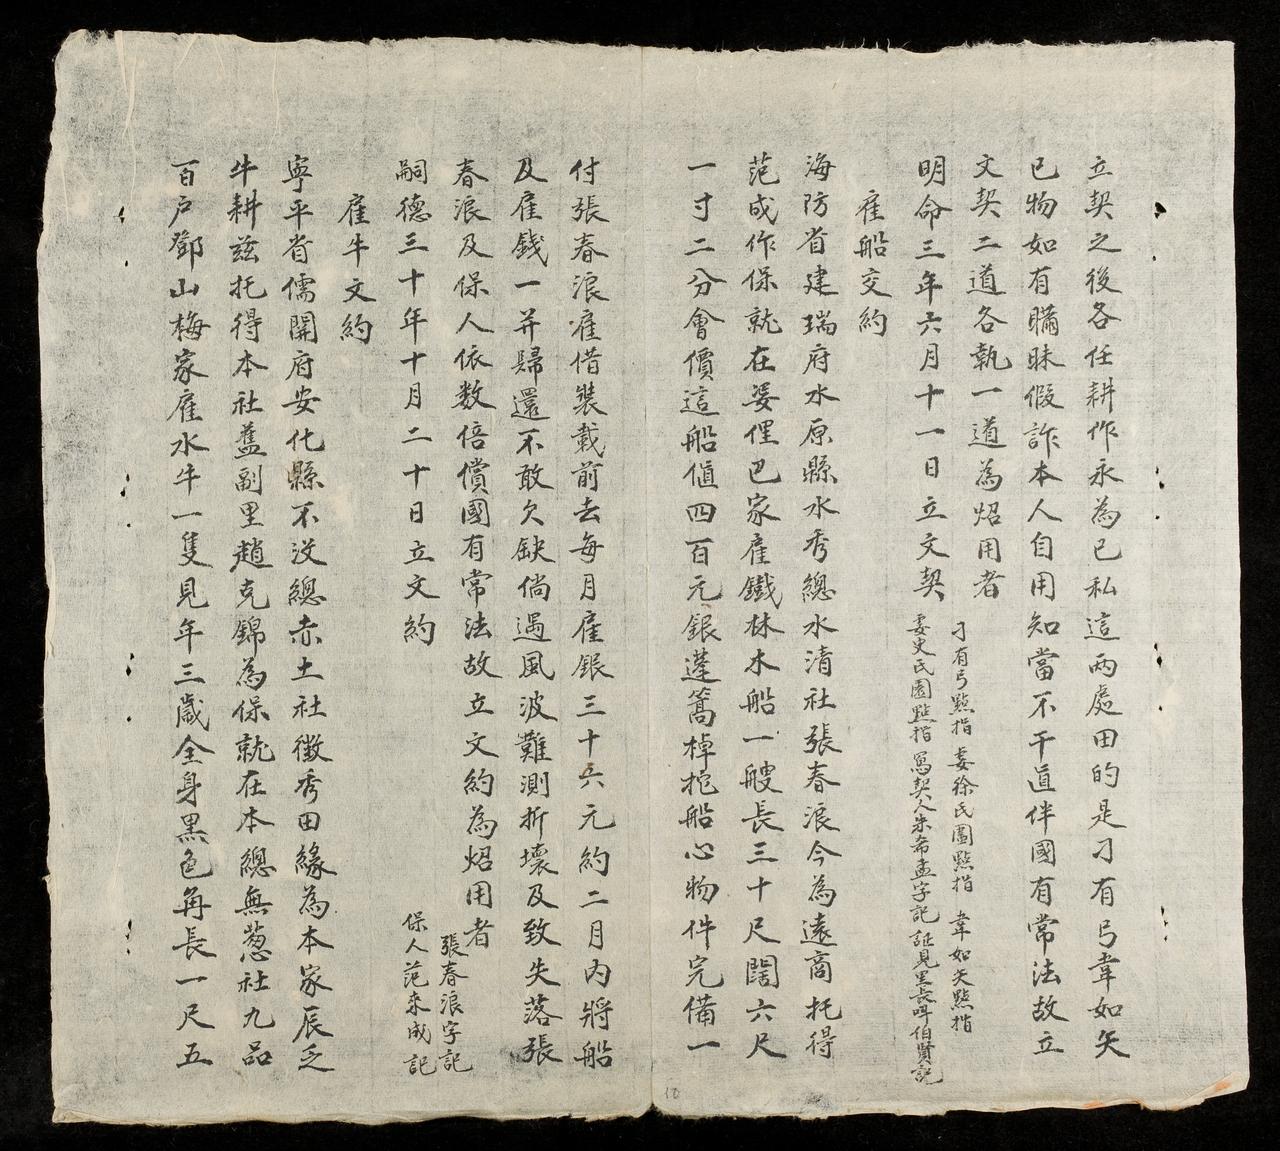 立契之後各任耕作永為已私這两處田的是刁有弓韋如矢
已物如有𥌒昧假詐本人自用知當不干道伴國有常法故立
文契二道各執一道為炤用者
刁有弓點指 妾徐氏圖點指 韋如矢點指
明命三年六月十一日立文契
妾史氏園點指 寫契人朱希孟字記 証見里長 伯賢記
雇船交約
海防省建瑞府水原縣水秀總水清社張春浪今為遠商托得
范成作保就在娑俚巴家雇鐵林木船一艘長三十尺闊六尺
一寸二分會價這船値四百元銀蓬篙棹柁船心物件完備一
付張春浪雇借裝載前去每月雇銀三十六元約二月内將船
及雇錢一并歸還不敢欠缺倘遇風波難測折壞及致失落張
春浪及保人依数倍償國有常法故立文約為炤用者
張春浪字記
嗣德三十年十月二十日立文約
保人范來成記
雇牛文約
寧平省儒關府安化縣不沒總赤土社徵秀田緣為本家辰乏
牛耕茲托得本社舊副里趙克錦為保就在本總無葱社九品
百戶鄧山梅家雇水牛一隻見年三歲全身黑色角長一尺五
10